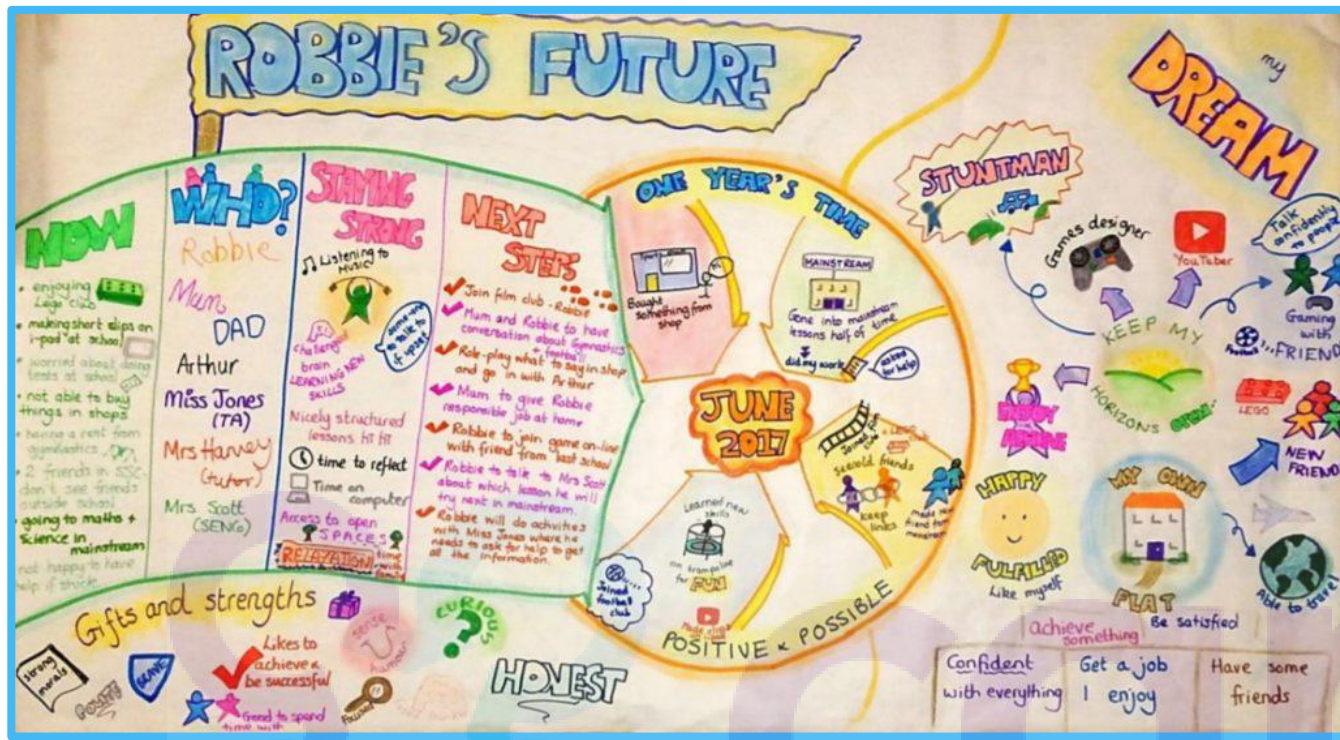 ROBBIE'S FUTURE
NOW
• enjoying
Lego club
• making short clips on
i-pad at school
• worried about doing
tests at school
• not able to buy
things in shops
• having a rest from
gymnastics
• 2 friends in SSC-
don't see friends
outside school
• going to maths +
Science in
mainstream
not happy to have
help if stuck
WHO?
Robbie
Mum
DAD
Arthur
Miss Jones
(TA)
Mrs Harvey
(tutor)
Mrs Scott
(SENCo)
STAYING
STRONG
Listening to
MUSIC
some-one
to talk to
if upset
challenging
brain
LEARNING NEW
SKILLS
Nicely structured
lessons
time to reflect
Time on
computer
Access to open
SPACES
RELAXATION
time
with
family
NEXT
STEPS
Join film club - Robbie
Mum and Robbie to have
conversation about Gymnastics
+ football
Role-play what to say in shop
and go in with Arthur
Mum to give Robbie
responsible job at home
Robbie to join game on-line
with friend from last school
Robbie to talk to Mrs Scott
about which lesson he will
try next in mainstream.
Robbie will do activities
with Miss Jones where he
needs to ask for help to get
all the information.
ONE YEAR'S TIME
Bought
something from
shop
MAINSTREAM
Gone into mainstream
lessons half of time
did my work
asked
for help
JUNE
2017
Joined film
club
+ LEGO
club
see old friends
keep
links
made new
friend from
mainstream
Learned new
skills
on trampoline
for FUN
Joined
football
club
Made clips
POSITIVE & POSSIBLE
my
DREAM
STUNTMAN
Games designer
YouTuber
Talk
confidently
to people
Gaming
with
FRIENDS
Football
KEEP MY
HORIZONS OPEN..
ENJOY
LEGO
NEW
FRIENDS
HAPPY
FULFILLED
Like myself
MY OWN
FLAT
Able to travel
achieve
something
Be satisfied
Confident
with everything
Get a job
I enjoy
Have some
friends
Gifts and strengths
strong
morals
BRAVE
Likes to
achieve &
be successful
Good to spend
time with
sense
humour
CURIOUS
HONEST